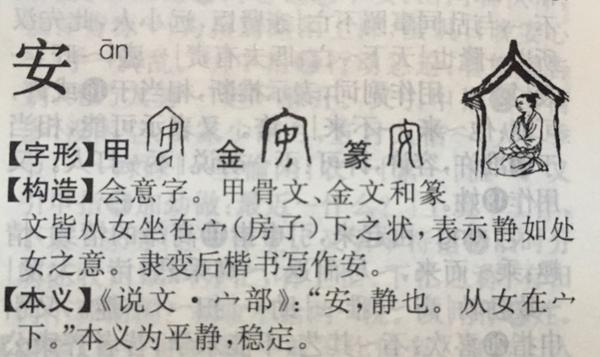 安 ān
【字形】甲 金 篆
【构造】会意字。甲骨文、金文和篆
文皆从女坐在宀(房子)下之状，表示静如处
女之意。隶变后楷书写作安。
【本义】《说文·宀部》：“安，静也。从女在宀
下。”本义为平静，稳定。